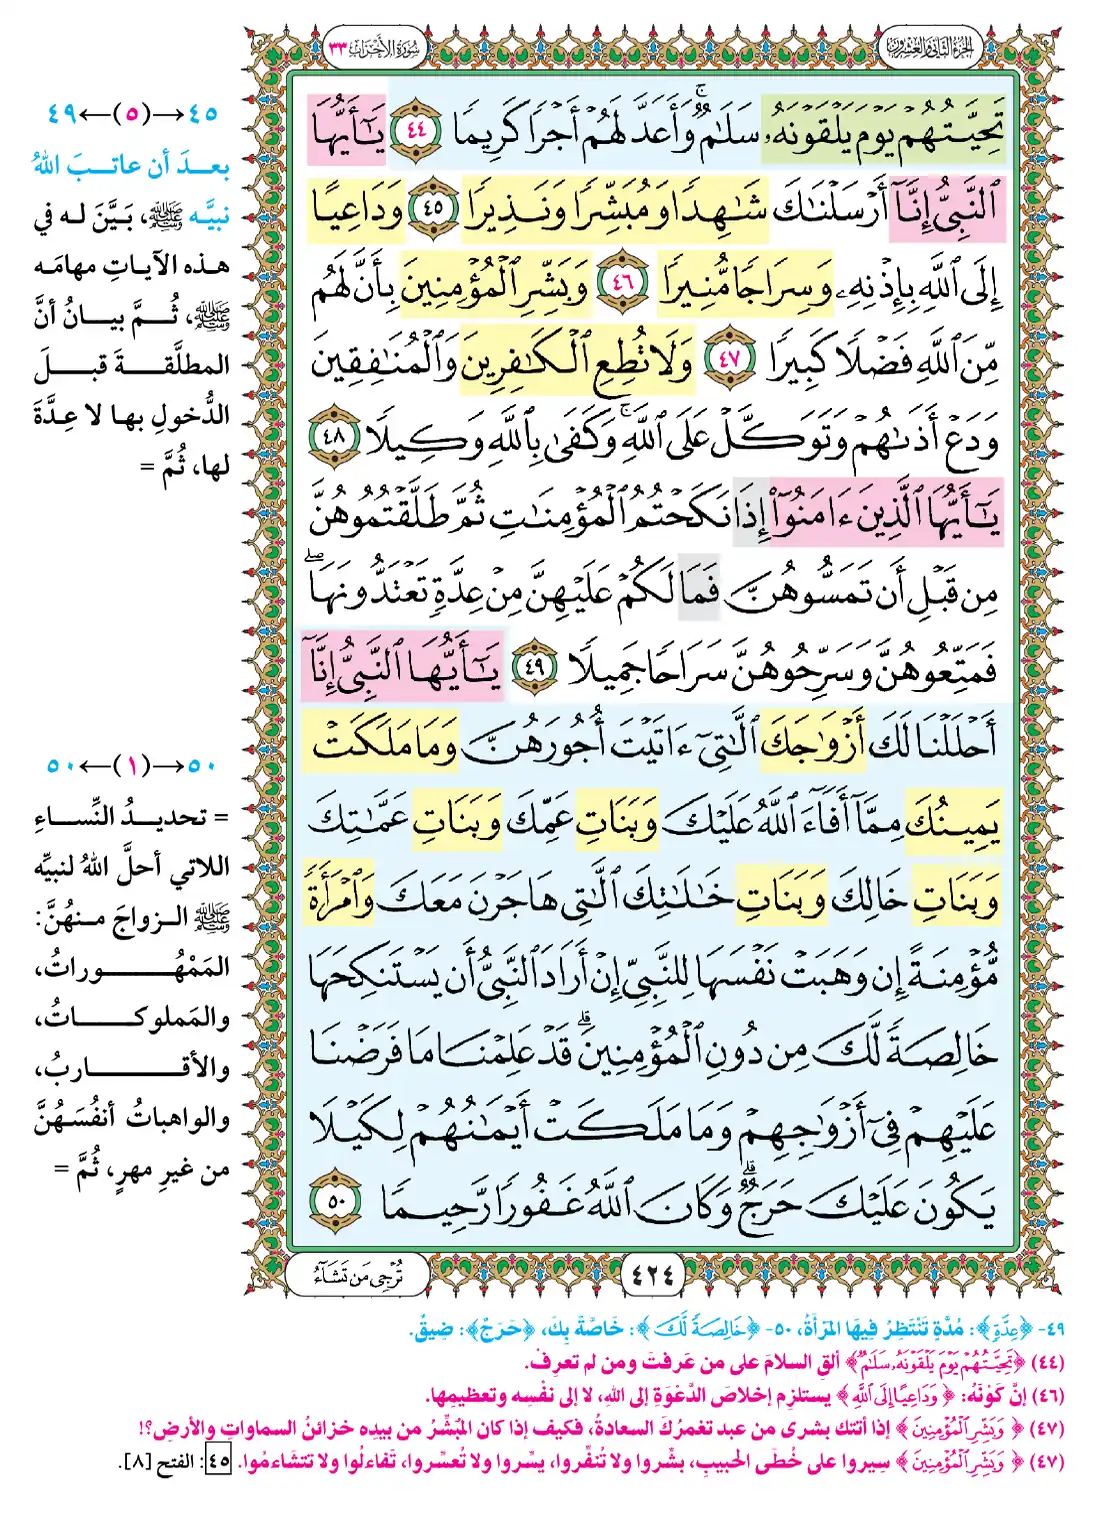 الجزء الثاني والعشرون
سورة الأحزاب ٣٣
تَحِيَّتُهُمْ يَوْمَ يَلْقَوْنَهُۥ سَلَٰمٌۚ وَأَعَدَّ لَهُمْ أَجْرًا كَرِيمًا ٤٤ يَٰٓأَيُّهَا
ٱلنَّبِيُّ إِنَّآ أَرْسَلْنَٰكَ شَٰهِدًا وَمُبَشِّرًا وَنَذِيرًا ٤٥ وَدَاعِيًا
إِلَى ٱللَّهِ بِإِذْنِهِۦ وَسِرَاجًا مُّنِيرًا ٤٦ وَبَشِّرِ ٱلْمُؤْمِنِينَ بِأَنَّ لَهُم
مِّنَ ٱللَّهِ فَضْلًا كَبِيرًا ٤٧ وَلَا تُطِعِ ٱلْكَٰفِرِينَ وَٱلْمُنَٰفِقِينَ
وَدَعْ أَذَىٰهُمْ وَتَوَكَّلْ عَلَى ٱللَّهِۚ وَكَفَىٰ بِٱللَّهِ وَكِيلًا ٤٨
يَٰٓأَيُّهَا ٱلَّذِينَ ءَامَنُوٓا۟ إِذَا نَكَحْتُمُ ٱلْمُؤْمِنَٰتِ ثُمَّ طَلَّقْتُمُوهُنَّ
مِن قَبْلِ أَن تَمَسُّوهُنَّ فَمَا لَكُمْ عَلَيْهِنَّ مِنْ عِدَّةٍ تَعْتَدُّونَهَاۖ
فَمَتِّعُوهُنَّ وَسَرِّحُوهُنَّ سَرَاحًا جَمِيلًا ٤٩ يَٰٓأَيُّهَا ٱلنَّبِيُّ إِنَّآ
أَحْلَلْنَا لَكَ أَزْوَٰجَكَ ٱلَّٰتِيٓ ءَاتَيْتَ أُجُورَهُنَّ وَمَا مَلَكَتْ
يَمِينُكَ مِمَّآ أَفَآءَ ٱللَّهُ عَلَيْكَ وَبَنَاتِ عَمِّكَ وَبَنَاتِ عَمَّٰتِكَ
وَبَنَاتِ خَالِكَ وَبَنَاتِ خَٰلَٰتِكَ ٱلَّٰتِي هَاجَرْنَ مَعَكَ وَٱمْرَأَةً
مُّؤْمِنَةً إِن وَهَبَتْ نَفْسَهَا لِلنَّبِيِّ إِنْ أَرَادَ ٱلنَّبِيُّ أَن يَسْتَنكِحَهَا
خَالِصَةً لَّكَ مِن دُونِ ٱلْمُؤْمِنِينَۗ قَدْ عَلِمْنَا مَا فَرَضْنَا
عَلَيْهِمْ فِيٓ أَزْوَٰجِهِمْ وَمَا مَلَكَتْ أَيْمَٰنُهُمْ لِكَيْلَا
يَكُونَ عَلَيْكَ حَرَجٌۗ وَكَانَ ٱللَّهُ غَفُورًا رَّحِيمًا ٥٠
٤٢٤
تُرْجِي مَن تَشَآءُ
٤٥→(٥)←٤٩
بعـدَ أن عاتـبَ اللهُ
نبيَّه ﷺ، بَيَّنَ لـه في
هـذه الآيـاتِ مهامَـه
ﷺ، ثُـمَّ بيـانُ أنَّ
المطلَّقـةَ قبـلَ
الدُّخولِ بهـا لا عِـدَّةَ
لها، ثُمَّ =
٥٠→(١)←٥٠
= تحديـدُ النِّسـاءِ
اللاتي أحلَّ اللهُ لنبيِّه
ﷺ الـزواجَ منهُنَّ:
المَمْهُـوراتُ،
والمَملوكـاتُ،
والأقـاربُ،
والواهباتُ أنفُسَـهُنَّ
من غيرِ مهرٍ، ثُمَّ =
٤٩- ﴿عِدَّةٍ﴾: مُدَّةٍ تَنْتَظِرُ فِيهَا المَرأَةُ، ٥٠- ﴿خَالِصَةً لَّكَ﴾: خَاصَّةً بِكَ، ﴿حَرَجٌ﴾: ضِيقٌ.
(٤٤) ﴿تَحِيَّتُهُمْ يَوْمَ يَلْقَوْنَهُۥ سَلَٰمٌ﴾ ألقِ السلامَ على من عَرفتَ ومن لم تعرِفْ.
(٤٦) إنَّ كَوْنَهُ: ﴿وَدَاعِيًا إِلَى ٱللَّهِ﴾ يستلزِم إخلاصَ الدَّعْوَةِ إلى اللهِ، لا إلى نفْسِه وتعظيمِها.
(٤٧) ﴿وَبَشِّرِ ٱلْمُؤْمِنِينَ﴾ إذا أتتكَ بشرى من عبد تغمرُكَ السعادةُ، فكيف إذا كان المُبَشِّرُ من بيدِه خزائنُ السماواتِ والأرضِ؟!
(٤٧) ﴿وَبَشِّرِ ٱلْمُؤْمِنِينَ﴾ سِيروا على خُطَى الحَبيبِ، بشِّروا ولا تُنفِّروا، يسِّروا ولا تُعسِّروا، تَفاءلُوا ولا تتشاءمُوا. ٤٥: الفتح [٨].